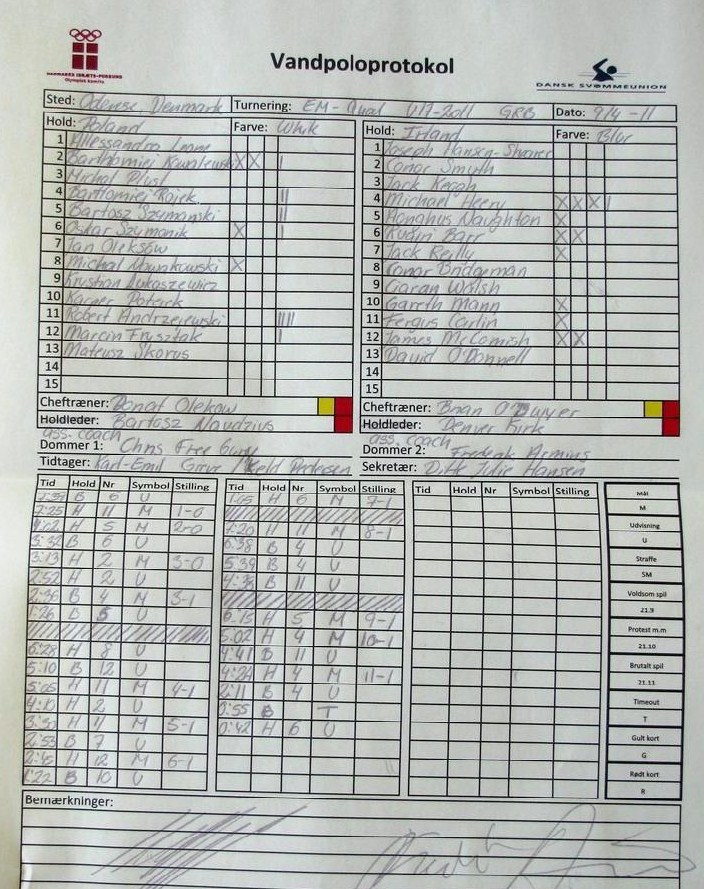 DANMARKS IDRÆTS-FORBUND
Olympisk komite
Vandpoloprotokol
DANSK SVØMMEUNION
Sted: Odense Denmark Turnering: EM-Qual U17-2011 GRB Dato: 9/4 -11
Hold: Poland Farve: White
1 Allessandro
2 Barthomiej Kowalewski X X I
3 Michal Plust
4 Bartlomiej Rojek II
5 Bartosz Szymanski II
6 Oskar Szymanik X I
7 Jan Oleksów
8 Michal Nowakowski X
9 Krystian Lukaszewicz
10 Kacper
11 Robert Andrzejewski IIII
12 Marcin Frysztak I
13 Mateusz Skorus
14
15
Cheftræner: Donat Olekow
Holdleder: Bartosz Naudzius
ass. coach
Hold: Irland Farve: Blur
1 Joseph Hansen-
2 Conor Smyth
3 Jack Keogh
4 Michael Heery X X X I
5 Aonghus Naughton X
6 Barr X X
7 Jack Reilly X
8 Conor Bridgeman
9 Ciaran Walsh
10 Gareth Mann X
11 Fergus Carlin X
12 James McComish X X
13 David O'Donnell
14
15
Cheftræner: Brian O'Dwyer
Holdleder: Denver Kirk
ass. coach
Dommer 1: Chris Free
Dommer 2: Frederik Armins
Tidtager: Karl-Emil Greve / Keld Pedersen
Sekretær: Ditte Julie Hansen
Tid Hold Nr Symbol Stilling
B 6 U
7:25 H 11 M 1-0
H 5 M 2-0
5:32 B 6 U
3:13 H 2 M 3-0
2:52 H 2 U
2:36 B 4 M 3-1
1:26 B 5 U
6:28 H 8 U
5:10 B 12 U
5:05 H 11 M 4-1
4:10 H 2 U
3:30 H 11 M 5-1
2:53 B 7 U
2:45 H 12 M 6-1
1:22 B 10 U
Tid Hold Nr Symbol Stilling
1:05 H 6 M 7-1
7:20 H 11 M 8-1
6:38 B 4 U
5:39 B 4 U
4:36 B 11 U
6:15 H 5 M 9-1
5:02 H 4 M 10-1
4:41 B 11 U
4:24 H 4 M 11-1
2:11 B 4 U
0:55 B T
0:42 H 6 U
Tid Hold Nr Symbol Stilling
Mål
M
Udvisning
U
Straffe
SM
Voldsom spil
21.9
Protest m.m
21.10
Brutalt spil
21.11
Timeout
T
Gult kort
G
Rødt kort
R
Bemærkninger: